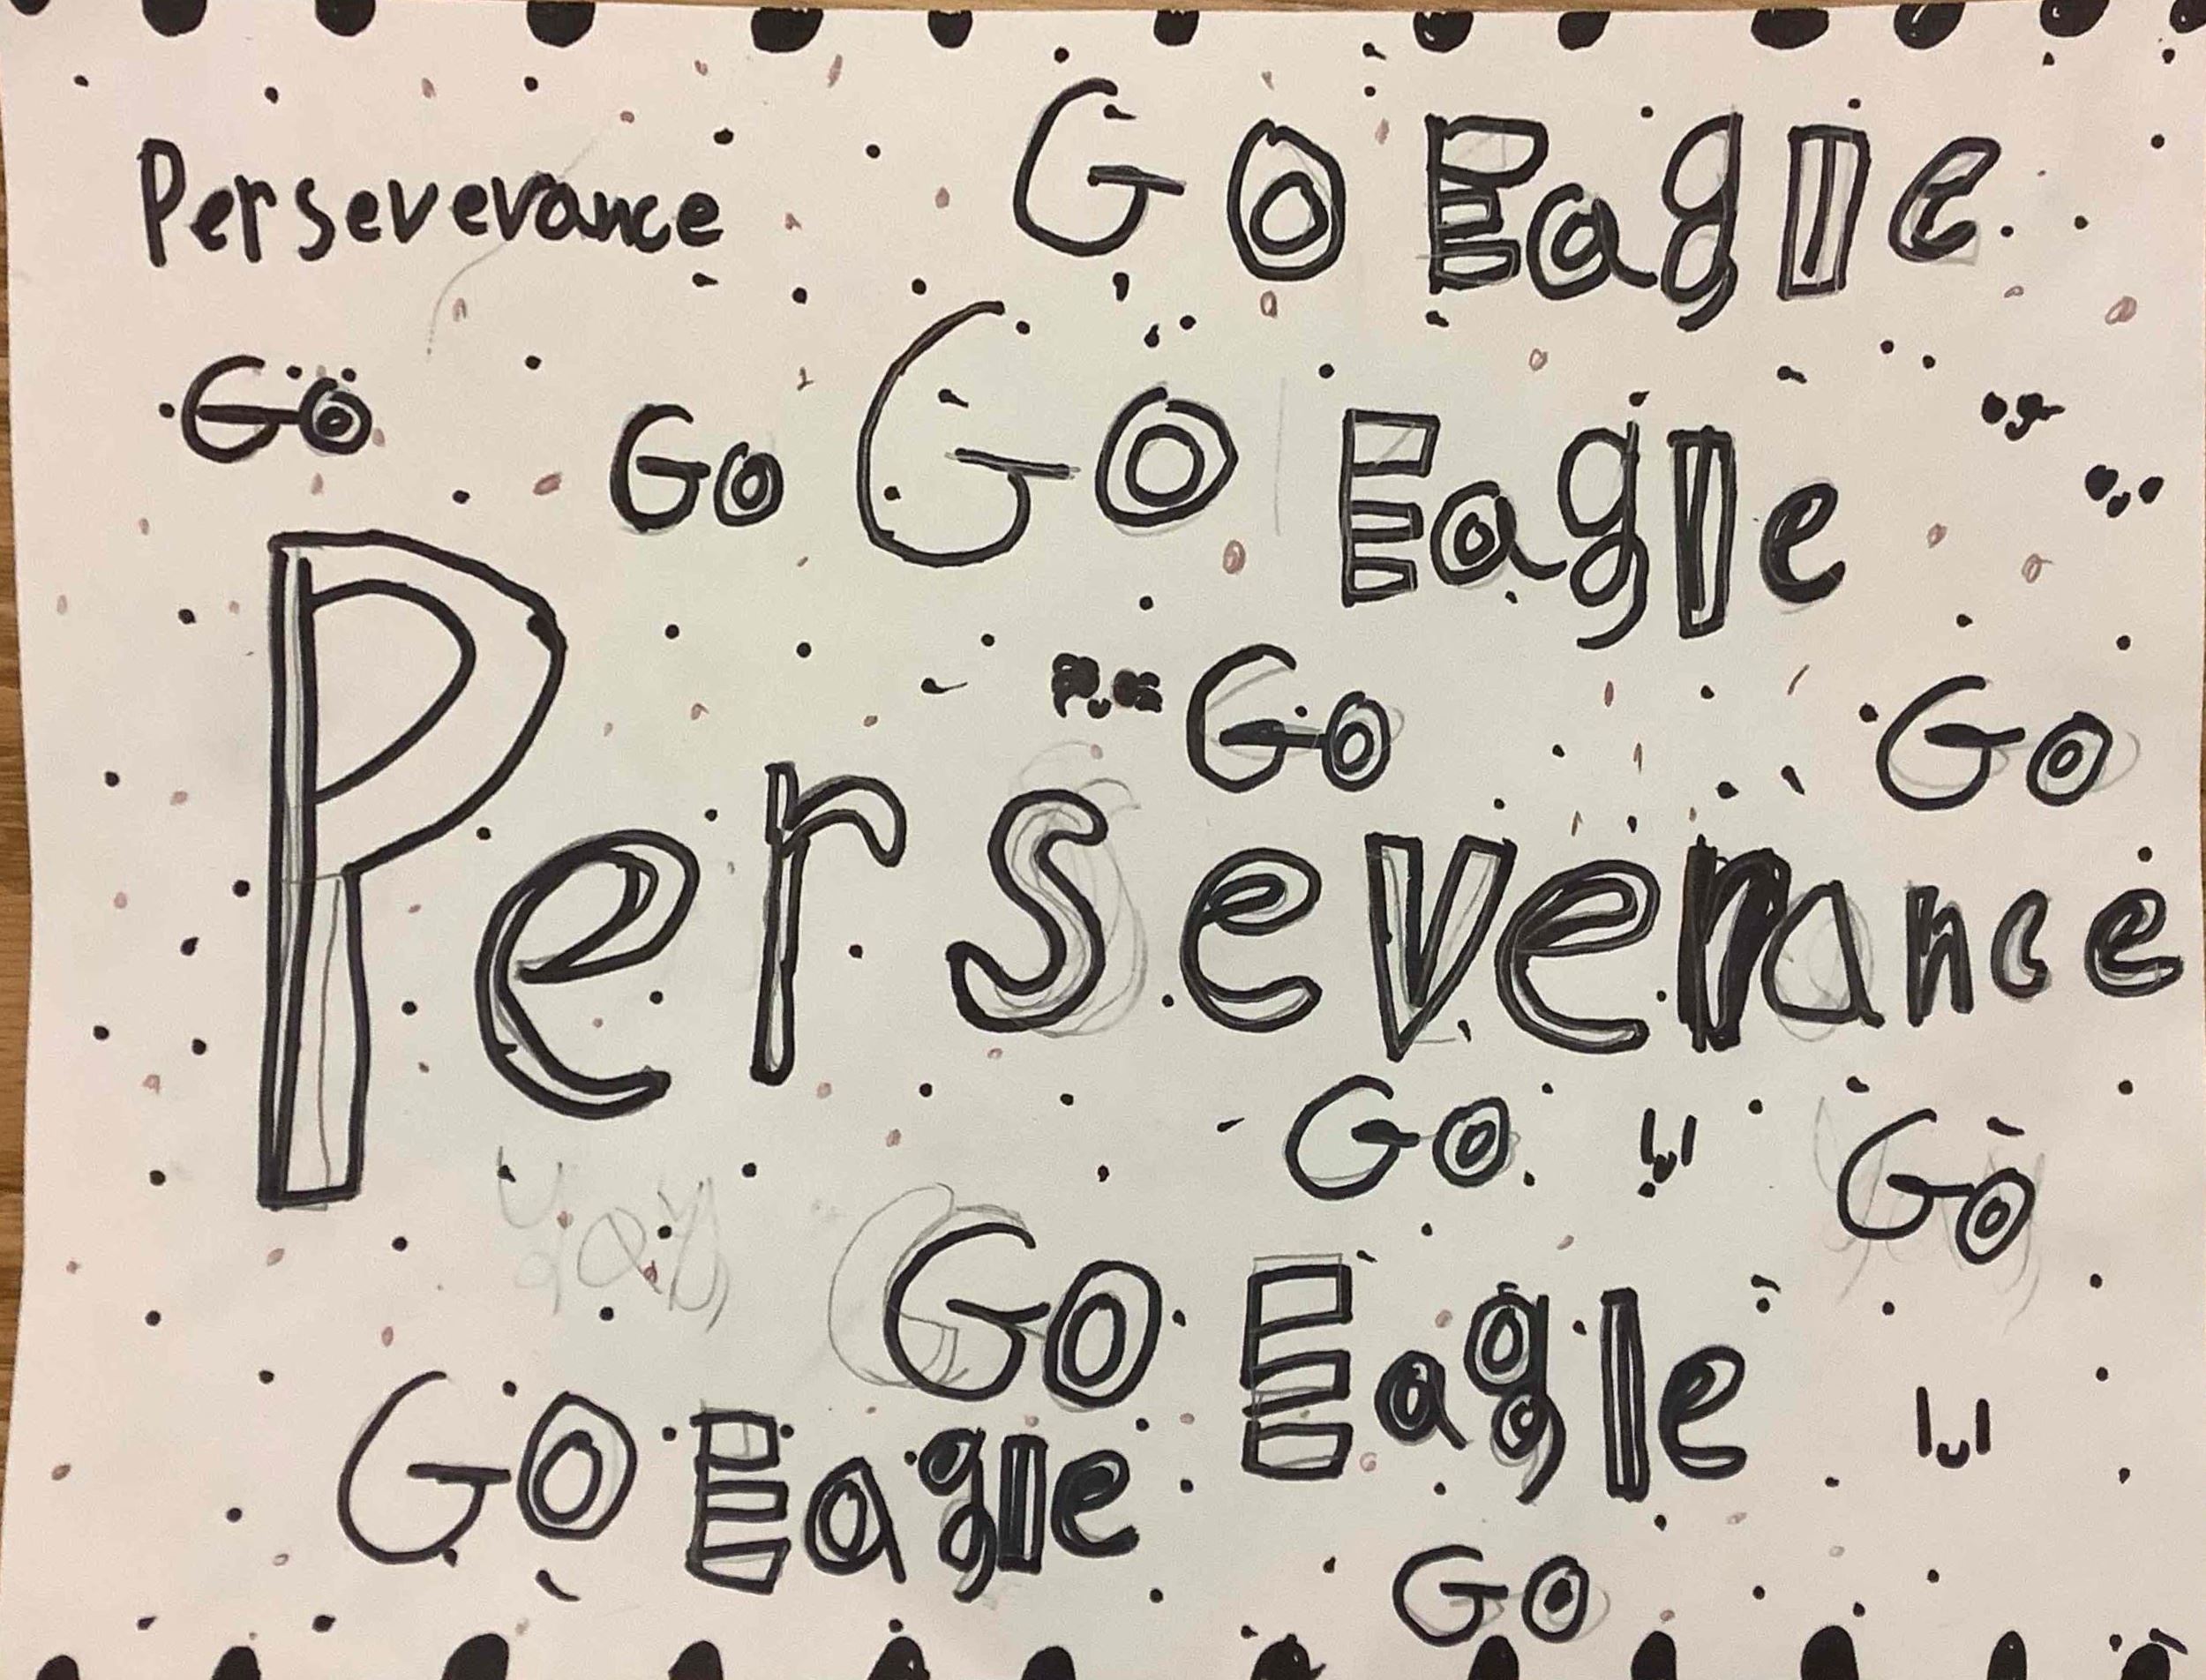 Perseverance
Go Eagle
Go
Go
Go Eagle
Go
Go
Perseverance
Go
Go
yay
Go Eagle
Go Eagle
Go